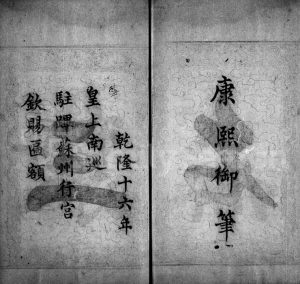 康熙御筆
乾隆十六年
皇上南巡
駐蹕蘇州行宮
欽賜匾額